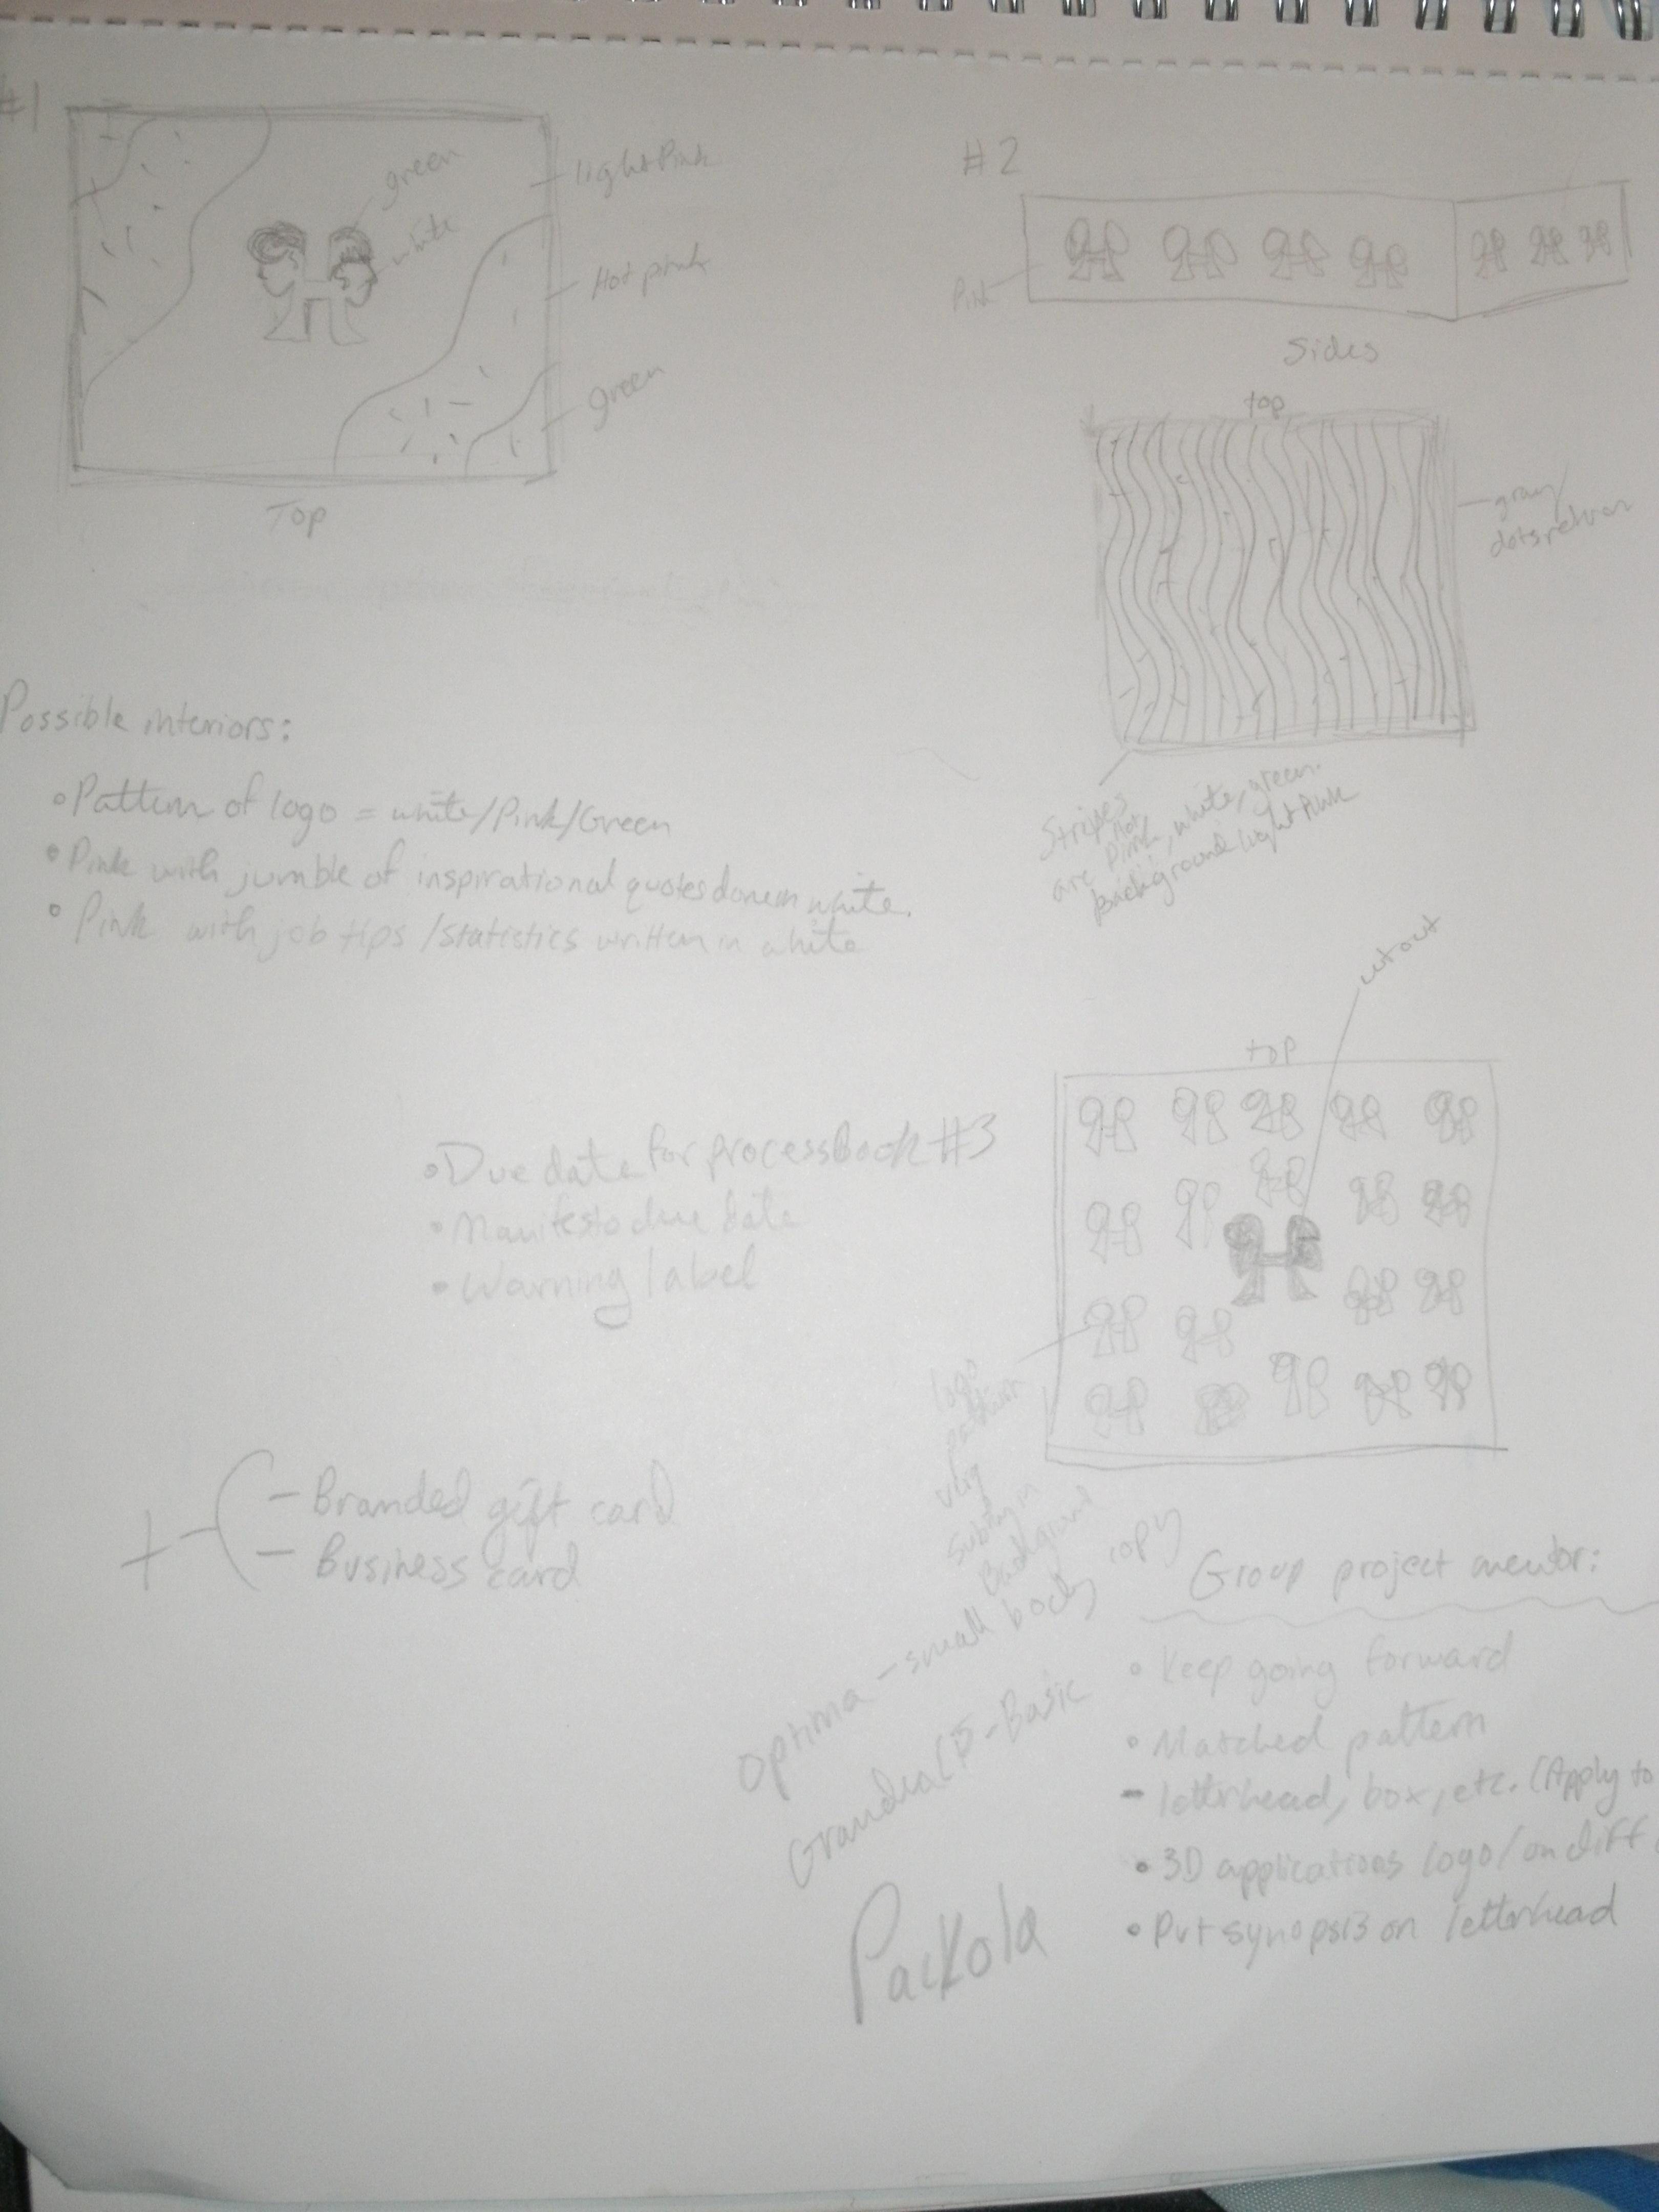 #1
green
white
light Pink
Hot pink
green
Top
#2
Pink
Sides
top
gray
dots
Stripes
are Hot
Pink, white, green.
Background light Pink
Possible interiors:
• Pattern of logo = white/Pink/Green
• Pink with jumble of inspirational quotes done in white.
• Pink with job tips/statistics written in white
cutout
top
logo
pattern
very
subtly in
Background
• Due date for process Book #3
• Manifesto due date
• Warning label
+
- Branded gift card
- Business card
Optima - small body copy
- Basic
Packola
Group project mentor:
• Keep going forward
• Matched pattern
- letterhead, box, etc. (Apply to
• 3D applications logo/on diff
• Put synopsis on letterhead